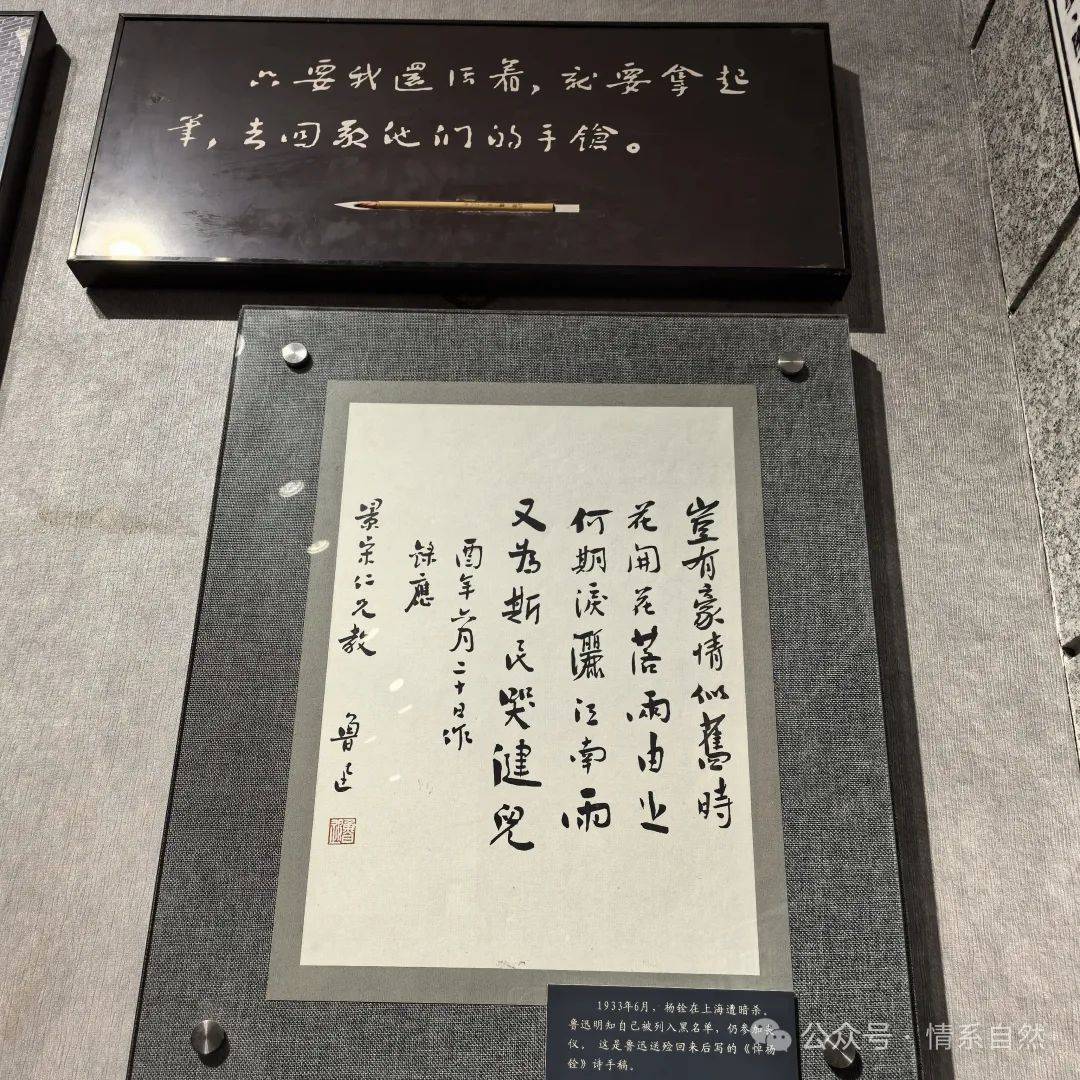 只要我還活着，就要拿起
筆，去回敬他们的手鎗。
豈有豪情似舊時
花開花落兩由之
何期淚灑江南雨
又為斯民哭健兒
酉年六月二十日作
錄應
景宋仁兄教 魯迅
1933年6月，杨铨在上海遭暗杀。
鲁迅明知自己被列入黑名单，仍参加丧
仪， 这是鲁迅送殓回来后写的《悼杨
铨》诗手稿。
公众号 · 情系自然